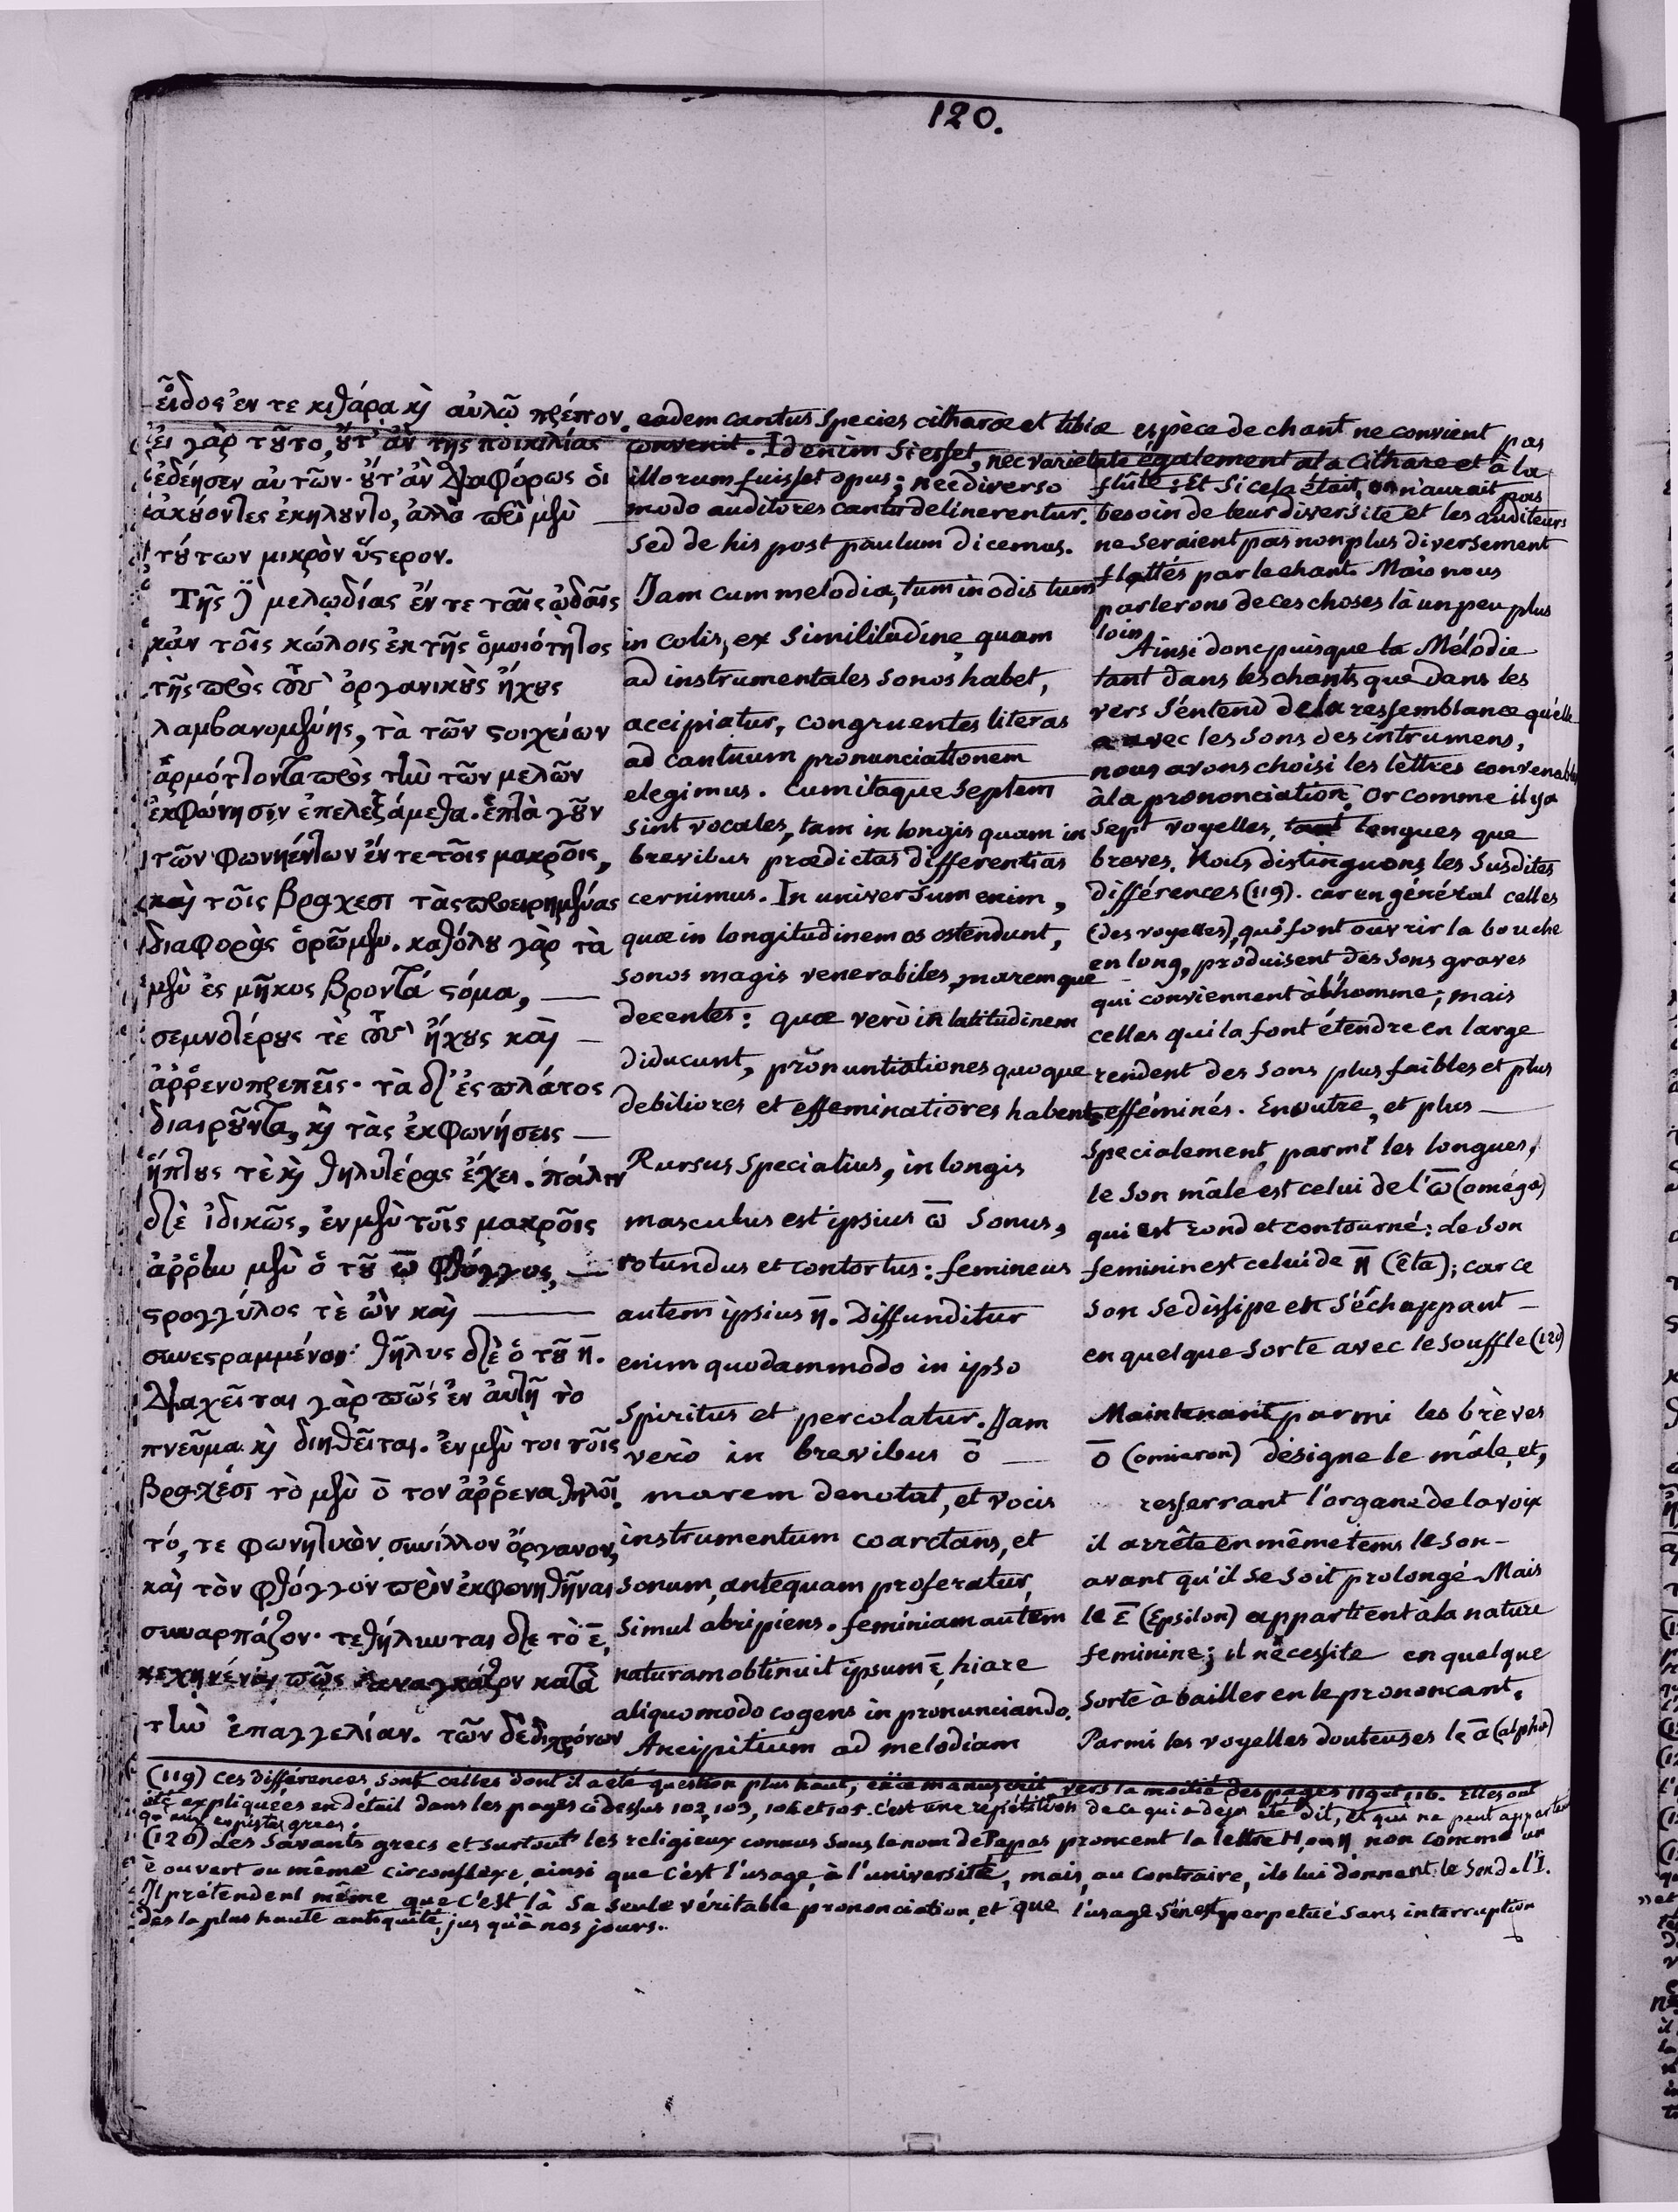 120.
εἶδος ἐν τε κιθάρᾳ κὶ αὐλῷ πρέπον.
εἰ γὰρ τȣ͂το, ȣ̓́τ' ἀν της ποικιλίας
ἐδέησεν αὐτῶν· ȣ̓́τ' ἀν διαφόρως ὁι
ἀκȣ́οντες ἐκηλȣντο, ἀλλὰ περὶ μὲν
τȣ́των μικρὸν ὕϛερον.
Τῆς δὲ μελῳδίας ἔν τε ταῖς ᾠδαῖς
κᾀν τοῖς κώλοις ἐκ τῆς ὁμοιότητος
τῆς πρὸς τοὺς ὀργανικȣ̀ς ἤχȣς
λαμβανομένης, τὰ τῶν ϛοιχείων
ἁρμότιοντα πρὸς τὴν τῶν μελῶν
ἐκφώνησιν ἐπελεξάμεθα. ἑπτὰ γȣ͂ν
τῶν φωνηέντων ἔν τε τοῖς μακροῖς,
καὶ τοῖς βραχεσι τὰς προειρημένας
διαφορὰς ὁρῶμεν. καθόλȣ γὰρ τὰ
μὲν ἐς μῆκος βροντά ϛόμα, —
σεμνοτέρȣς τὲ τοὺς ἤχȣς καὶ —
ἀῤῥενοπρεπεῖς· τὰ δ' ἐς πλάτος
διαιρȣ͂ντα, κὶ τὰς ἐκφωνήσεις —
ἥπτȣς τὲ κὶ θηλυτέρας ἔχει. πάλιν
δὲ ἰδικῶς, ἐν μὲν τοῖς μακροῖς
ἀῤῥην μὲν ὁ τȣ͂ ω̅ φθόγγος, —
ϛρογγύλος τὲ ὢν καὶ —
συνεϛραμμένον· θῆλυς δὲ ὁ τȣ͂ η̅.
διαχεῖται γὰρ πῶς ἐν αὐτῇ τὸ
πνεῦμα κὶ διηθεῖται. ἐν μὲν τοι τοῖς
βραχέσι τὸ μὲν ο̅ τον ἀῤῥενα δηλοῖ
τό, τε φωνητικὸν συνίλλον ὄργανον,
καὶ τὸν φθόγγον πρὶν ἐκφωνηθῆναι
συναρπάζον· τεθήλυνται δὲ τὸ ε̅,
κεχηνέναι πῶς ἀναγκάζον κατὰ
τὴν ἐπαγγελίαν. τῶν δὲ διχρόνων
eadem cantus species citharæ et tibiæ
convenit. Id enim si esset, nec varietate
illorum fuisset opus; nec diverso
modo auditores cantu delinerentur.
Sed de his post paulum dicemus.
Jam cum melodia, tum in odis tum
in colis, ex similitudine quam
ad instrumentales sonos habet,
accipiatur, congruentes literas
ad cantuum pronunciationem
elegimus. Cum itaque septem
sint vocales, tam in longis quam in
brevibus prædictas differentias
cernimus. In universum enim,
quæ in longitudinem os ostendunt,
sonos magis venerabiles, maremque
decentes: quæ verò in latitudinem
diducunt, pronuntiationes quoque
debiliores et effeminatiores habent.
Rursus specialius, in longis
masculus est ipsius ω̅ sonus,
rotundus et contortus: femineus
autem ipsius η̅. Diffunditur
enim quodammodo in ipso
Spiritus et percolatur. Jam
verò in brevibus ο̅ —
marem denotat, et vocis
instrumentum coarctans, et
sonum, antequam proferatur,
simul abripiens. feminiam autem
naturam obtinuit ipsum ε̅, hiare
aliquomodo cogens in pronunciando.
Ancipitium ad melodiam
espèce de chant ne convient pas
également à la Cithare et à la
flûte: Et si cela était, on n'aurait pas
besoin de leur diversité et les auditeurs
ne seraient pas non plus diversement
flattés par le chant. Mais nous
parlerons de ces choses là un peu plus
loin.
Ainsi donc puisque la Mélodie
tant dans les chants que dans les
vers s'entend de la ressemblance qu'elle
a avec les sons des intrumens,
nous avons choisi les lèttres convenables
à la prononciation. Or comme il y a
sept voyelles, tant longues que
breves. Nous distinguons les susdites
différences (119). car en général celles
(des voyelles), qui font ouvrir la bouche
en long, produisent des sons graves
qui conviennent à l'homme; mais
celles qui la font étendre en large
rendent des sons plus faibles et plus
efféminés. En outre, et plus —
specialement, parmi les longues,
le son mâle est celui de l'ω̅ (oméga)
qui est rond et contourné: le son
feminin est celui de η̅ (êta); car ce
son se dissipe en s'échappant —
en quelque sorte avec le souffle (120)
Maintenant parmi les brèves
ο̅ (omicron) désigne le mâle, et,
resserrant l'organe de la voix
il arrête en même tems le son —
avant qu'il se soit prolongé. Mais
le ε̅ (Epsilon) appartient à la nature
feminine; il nécessite en quelque
sorte à bailler en le prononcant.
Parmi les voyelles douteuses le α̅ (alpha)
(119) Ces différences sont celles dont il a été question plus haut, en ce manuscrit vers la moitié des pages 119 et 116. Elles ont
été expliquées en détail dans les pages ci dessus 102, 103, 104 et 105. C'est une répétition de ce qui a déja été dit, et qui ne peut appartenir
qu'aux copistes grecs.
(120) Les Savants grecs et surtout les religieux connus sous le nom de Papas proncent la lettre H, ou η, non comme un
è ouvert ou même circonflexe, ainsi que c'est l'usage à l'université, mais, au contraire, ils lui donnent le son de l'I.
Il prétendent même que c'est là sa seule véritable prononciation, et que l'usage s'en est perpetué sans interruption
dès la plus haute antiquité, jus qu'à nos jours.